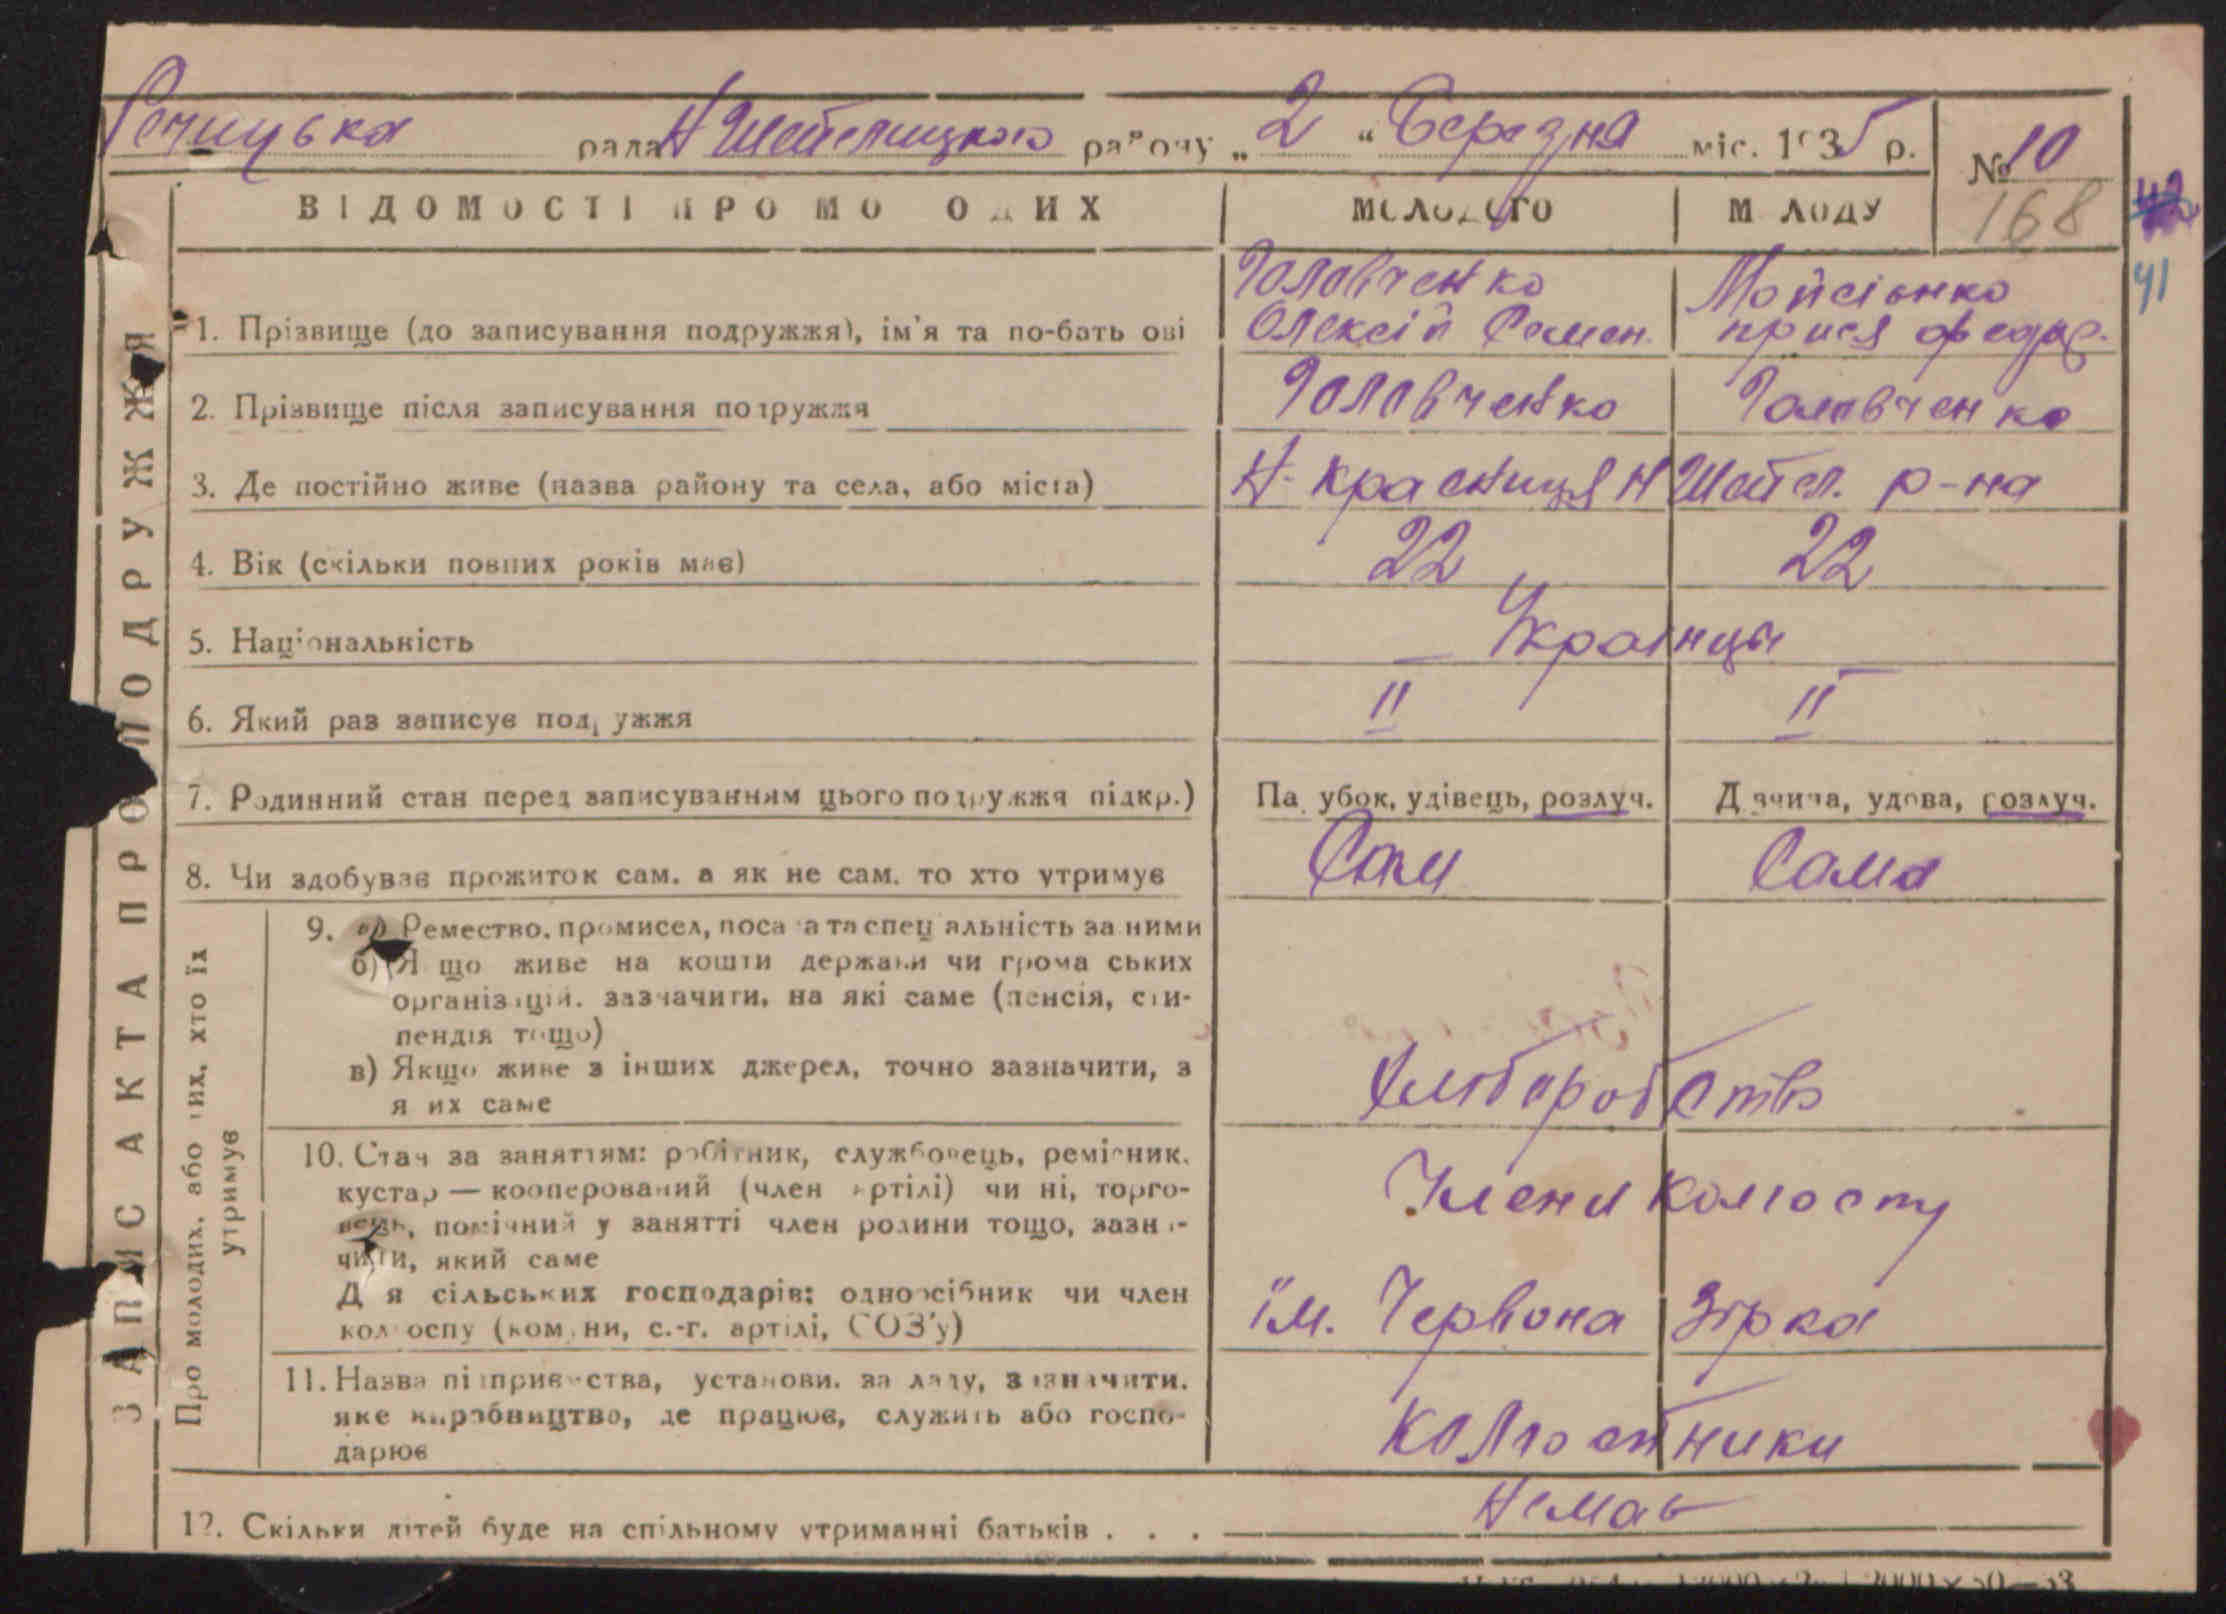 Речицька рада Н Шепелицького району „2“ Березня міс. 1935 р. № 10
168
41
ВІДОМОСТІ ПРО МОЛОДИХ МОЛОДОГО МОЛОДУ
ЗАПИС АКТА ПРО ПОДРУЖЖЯ
1. Прізвище (до записування подружжя), ім'я та по-батькові
Головченко
Олексій Семен.
Мойсієнко
Прися Федор.
2. Прізвище після записування подружжя Головченко Головченко
3. Де постійно живе (назва району та села, або міста) Н-Красниця Н Шепел. р-на
4. Вік (скільки повних років має) 22 22
5. Національність Українцы
6. Який раз записує подружжя II II
7. Родинний стан перед записуванням цього подружжя підкр.) Парубок, удівець, розлуч. Дівчина, удова, розлуч.
8. Чи здобуває прожиток сам, а як не сам, то хто утримує Сам Сама
Про молодих, або тих, хто їх
утримує
9. а) Ремество, промисел, посада та спеціальність за ними
б) Якщо живе на кошти держави чи громадських
організацій, зазначити, на які саме (пенсія, сти-
пендія тощо)
в) Якщо живе з інших джерел, точно зазначити, з
яких саме
Хлібороб ство
10. Стан за заняттям: робітник, службовець, ремісник,
кустар — кооперований (член артілі) чи ні, торго-
вець, помічний у занятті член родини тощо, зазна-
чити, який саме
Для сільських господарів: одноосібник чи член
колгоспу (комуни, с.-г. артілі, СОЗ'у)
Члени колгоспу
ім. Червона Зірка
11. Назва підприємства, установи, закладу, зазначити,
яке виробництво, де працює, служить або госпо-
дарює
Колгоспники
12. Скільки дітей буде на спільному утриманні батьків . . . Немає